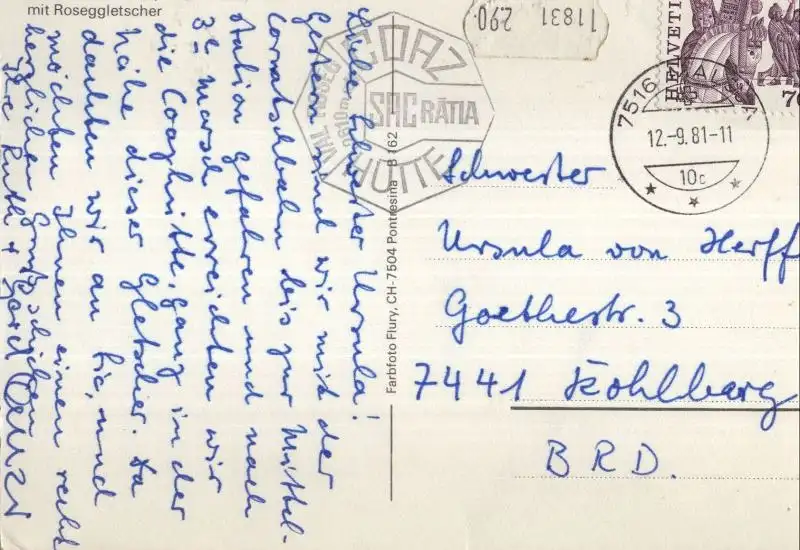 mit Roseggletscher
Liebe Schwester Ursula!
Gestern sind wir mit der
Corvatschbahn bis zur Mittel-
station gefahren und nach
3 Marsch erreichten wir
die Coazhütte, ganz in der
Nähe dieser Gletscher. Da
dachten wir an Sie, und
möchten Ihnen einen recht
herzlichen Gruß schicken
Ihre Ruth + Gerd
COAZ
HÜTTE
SAC RÄTIA
VAL ROSEG
2610 m
Farbfoto Flury, CH-7504 Pontresina B 162
2.90
11831
HELVETIA
70
7516
12.-9.81-11
10c
Schwester
Ursula von Herff
Goethestr. 3
7441 Kohlberg
BRD.